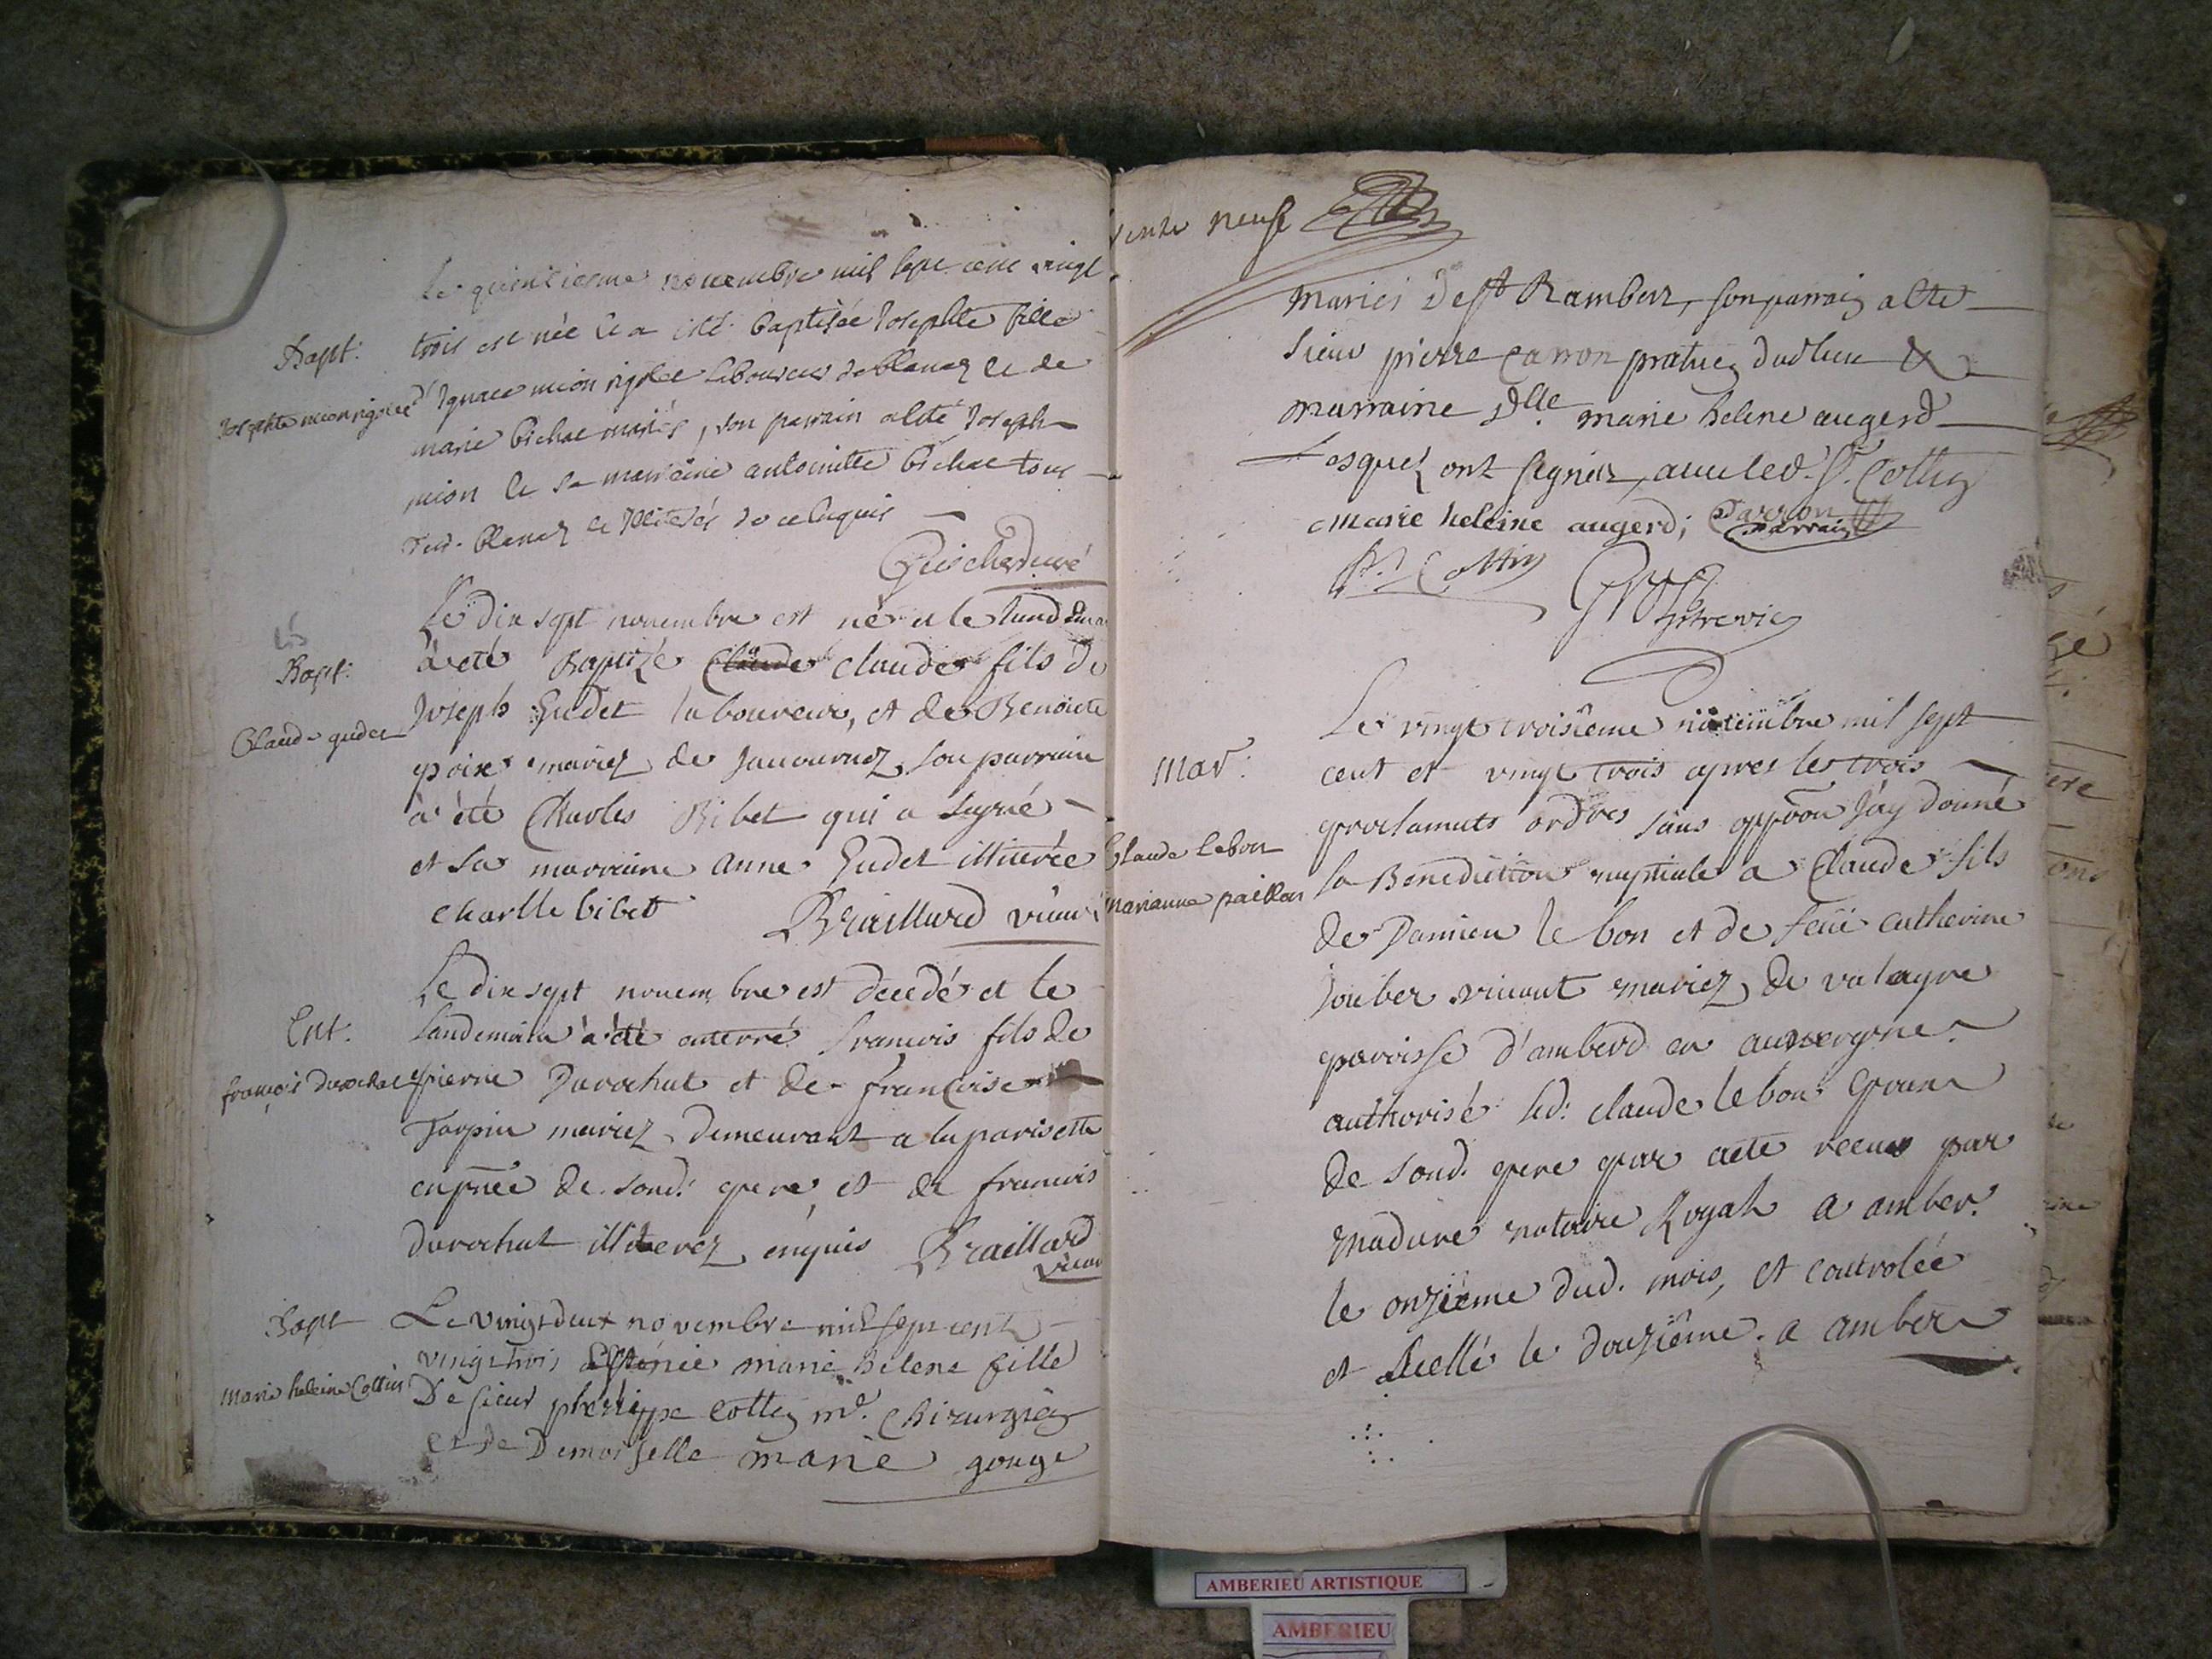 Bapt.
Josephte mion rigolet
Le quinzieme novembre mil sept cent vingt
trois est née et a esté baptisée Josephte fille
d'Ignace mion rigolet laboureur de blanaz et de
marie bichat mariés, son parrain a été Joseph
mion et sa marraine antoinette bichat tous
dud. blanaz et illiterés de ce enquis
Guichard curé
Bapt.
Claude gudet
Le dix sept novembre est né et le lend
à eté Baptizé Claude claude fils de
Joseph Gudet laboureur, et de Benoite
poix mariez de Jaucournez, son parrain
à été Charles Bibet qui a signé
et sa marraine anne Gudet illiterée
charlle bibet
Braillard vicaire
Ent.
françois durochat
Le dix sept novembre est decedé et le
landemain à été enterré francois fils de
pierre Durochat et de francoise
Tarpin mariez demeurant a la parisette
en pñce de sond. pere, et de francois
durochat illiterez, enquis Braillard
vicaire
Bapt
Marie heleine Cottin
Le vingt deux novembre mil sept cent
vingt trois est née marie helene fille
De sieur philippe Cottin md. Chirurgien
et de Demoiselle marie gouge
trente neuf
mariés de St Rambert, son parrain a été
sieur pierre Carron praticien dud lieu &
marraine dlle. marie helene augerd
Lesquels ont signez, avec led. Sr. Cottin
marie heleine augerd; Carron
parrain
Ph. Cottin
mar.
Claude lebon
marianne paillon
Le vingt troisieme novembre mil sept
cent et vingt trois apres les trois
proclamats ordres sans oppõon j'ay donné
la Benediction nuptiale a Claude fils
de Damien le bon et de feüe catherine
Jouber vivant mariez de valayre
paroisse d'amberd en auvergne
authorisé led: claude le bon
de sond. pere par acte receu par
madure notaire Royal a amber.
le onzieme dud. mois, et controlée
et scellé le douzieme. a amber
AMBERIEU ARTISTIQUE
AMBERIEU